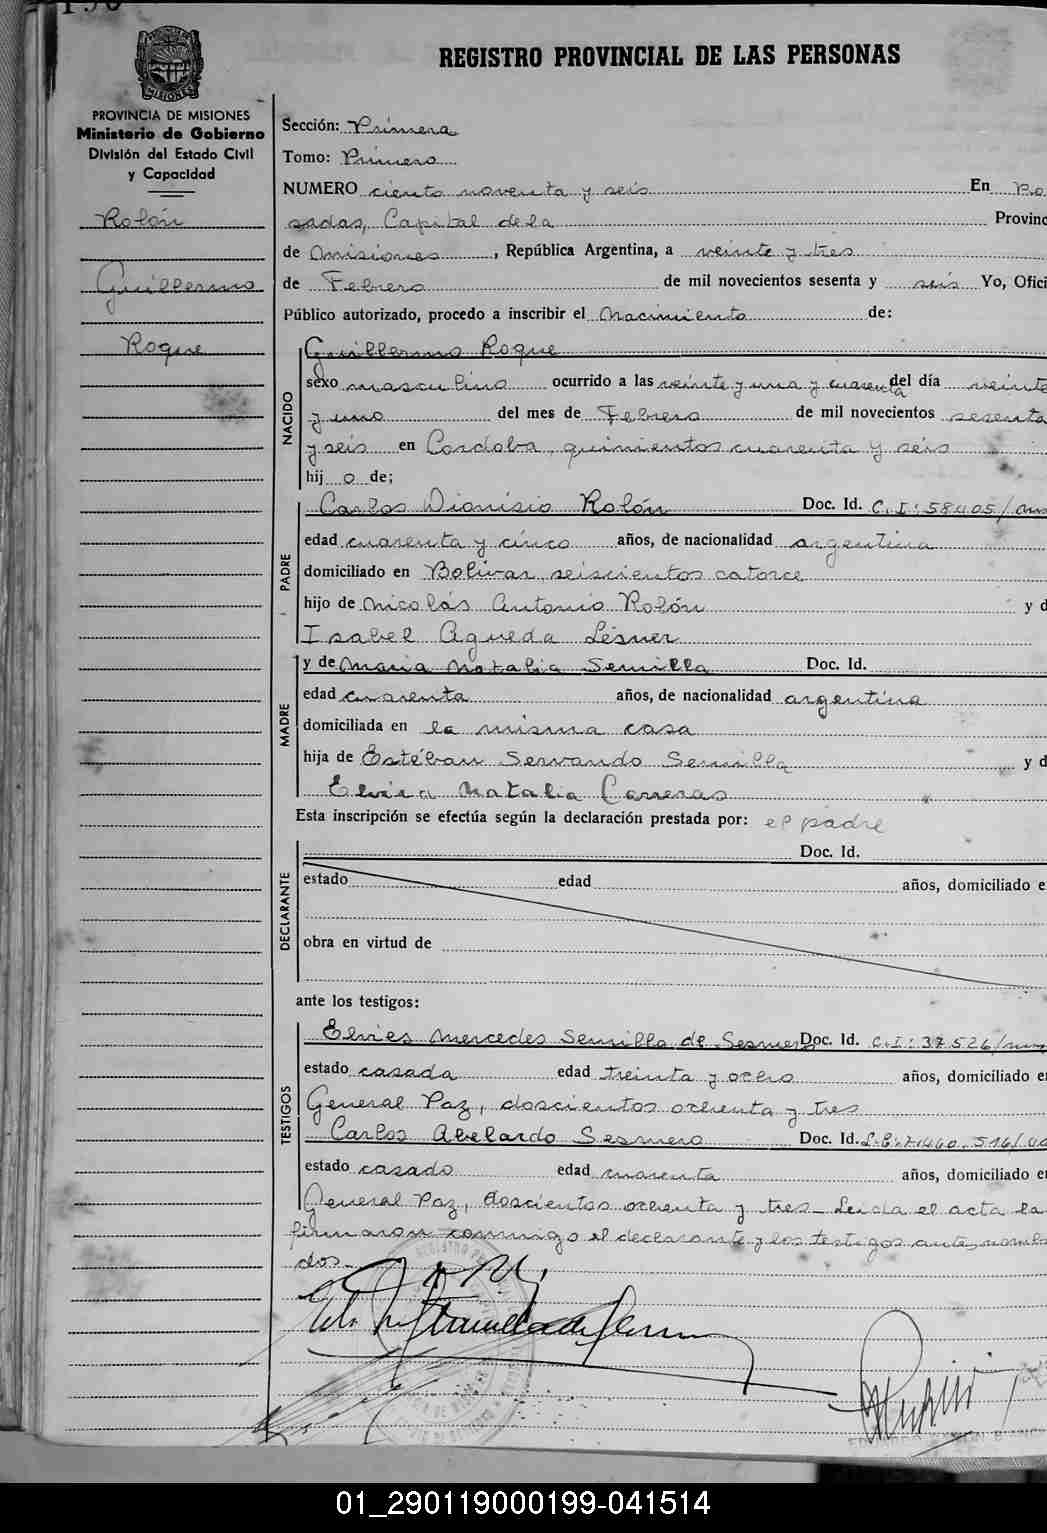 REGISTRO PROVINCIAL DE LAS PERSONAS
MISIONES
PROVINCIA DE MISIONES
Ministerio de Gobierno
División del Estado Civil
y Capacidad
Rolón
Guillermo
Roque
Sección: Primera
Tomo: Primero
NUMERO ciento noventa y seis En Po
sadas, Capital de la Provinc
de Misiones, República Argentina, a veinte y tres
de Febrero de mil novecientos sesenta y seis Yo, Ofici
Público autorizado, procedo a inscribir el Nacimiento de:
NACIDO
Guillermo Roque
sexo masculino ocurrido a las veinte y una y cuarenta del día veinte
y uno del mes de Febrero de mil novecientos sesenta
y seis en Cordoba, quinientos cuarenta y seis
hij o de;
PADRE
Carlos Dionisio Rolón Doc. Id. C.I: 58405/
edad cuarenta y cinco años, de nacionalidad argentina
domiciliado en Bolivar seiscientos catorce
hijo de Nicolás Antonio Rolón y d
Isabel Agueda Lésner
MADRE
y de Maria Natalia Semilla Doc. Id.
edad cuarenta años, de nacionalidad argentina
domiciliada en la misma casa
hija de Estéban Servando Semilla y d
Elvira Natalia Carreras
Esta inscripción se efectúa según la declaración prestada por: el padre
DECLARANTE
Doc. Id.
estado edad años, domiciliado e
obra en virtud de
ante los testigos:
TESTIGOS
Mercedes Semilla de Sesmero Doc. Id. C.I: 37526/
estado casada edad treinta y ocho años, domiciliado en
General Paz, doscientos ochenta y tres
Carlos Abelardo Sesmero Doc. Id.
estado casado edad cuarenta años, domiciliado en
General Paz, doscientos ochenta y tres Leida el acta la
firmaron conmigo el declarante y los testigos ante nombra
dos.-
01_290119000199-041514